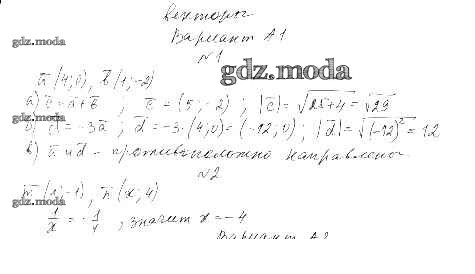 векторы
Вариант А1
gdz.moda
№1
a̅ (4;0), b̅ (1;-2)
gdz.moda
а) c̅ = a̅ + b̅ , c̅ = (5; -2) ; |c̅| = √25+4 = √29
gdz.moda
б) d̅ = -3a̅ ; d̅ = -3·(4;0) = (-12;0) ; |d̅| = √(-12)² = 12
в) a̅ и d̅ - противоположно направлены
№2
m̅ (1;-1), n̅ (x; 4)
gdz.moda
1/x = -1/4 , значит x = -4
Вариант А2